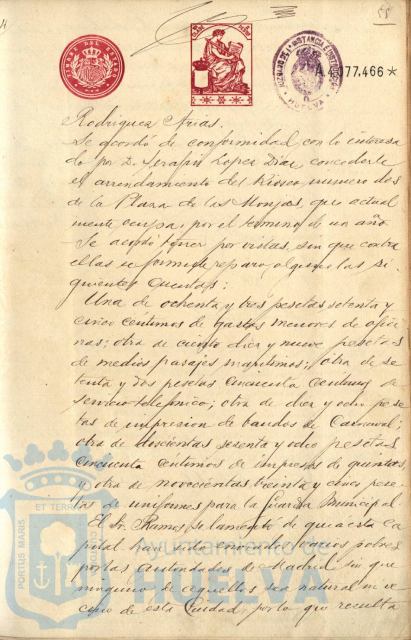 TIMBRE DEL ESTADO
JUZGADO DE 1ª INSTANCIA E INSTRUCCION
HUELVA
A.4.077.466*
Rodriguez Arias.
Se acordó de conformidad con lo interesa
do por D. Serafin Lopez Diaz concederle
el arrendamiento del Kiosco numero dos
de la Plaza de las Monjas, que actual
mente ocupa, por el termino de un año.
Se acordó tener por vistas, sin que contra
ellas se formule reparo alguno las si
guientes cuentas:
Una de ochenta y tres pesetas setenta y
cinco centimos de gastos menores de ofici
nas; otra de ciento diez y nueve pesetas
de medios pasajes maritimos; otra de se
tenta y dos pesetas cincuenta centimos de
servicio telefonico; otra de diez y ocho pese
tas de impresion de bandos de Carnaval;
otra de doscientas sesenta y ocho pesetas
cincuenta centimos de impresos de quintas,
y otra de novecientas treinta y cinco pese
tas de uniformes para la Guardia Municipal.
El Sr. Ramos se lamentó de que a esta Ca
pital han sido varios pobres
por las autoridades de Madrid sin que
ninguno de aquellos sea natural ni ve
cino de esta Ciudad, por lo que resulta
PORTUS MARIS
ET TERRAE
Ayuntamiento de
HUELVA